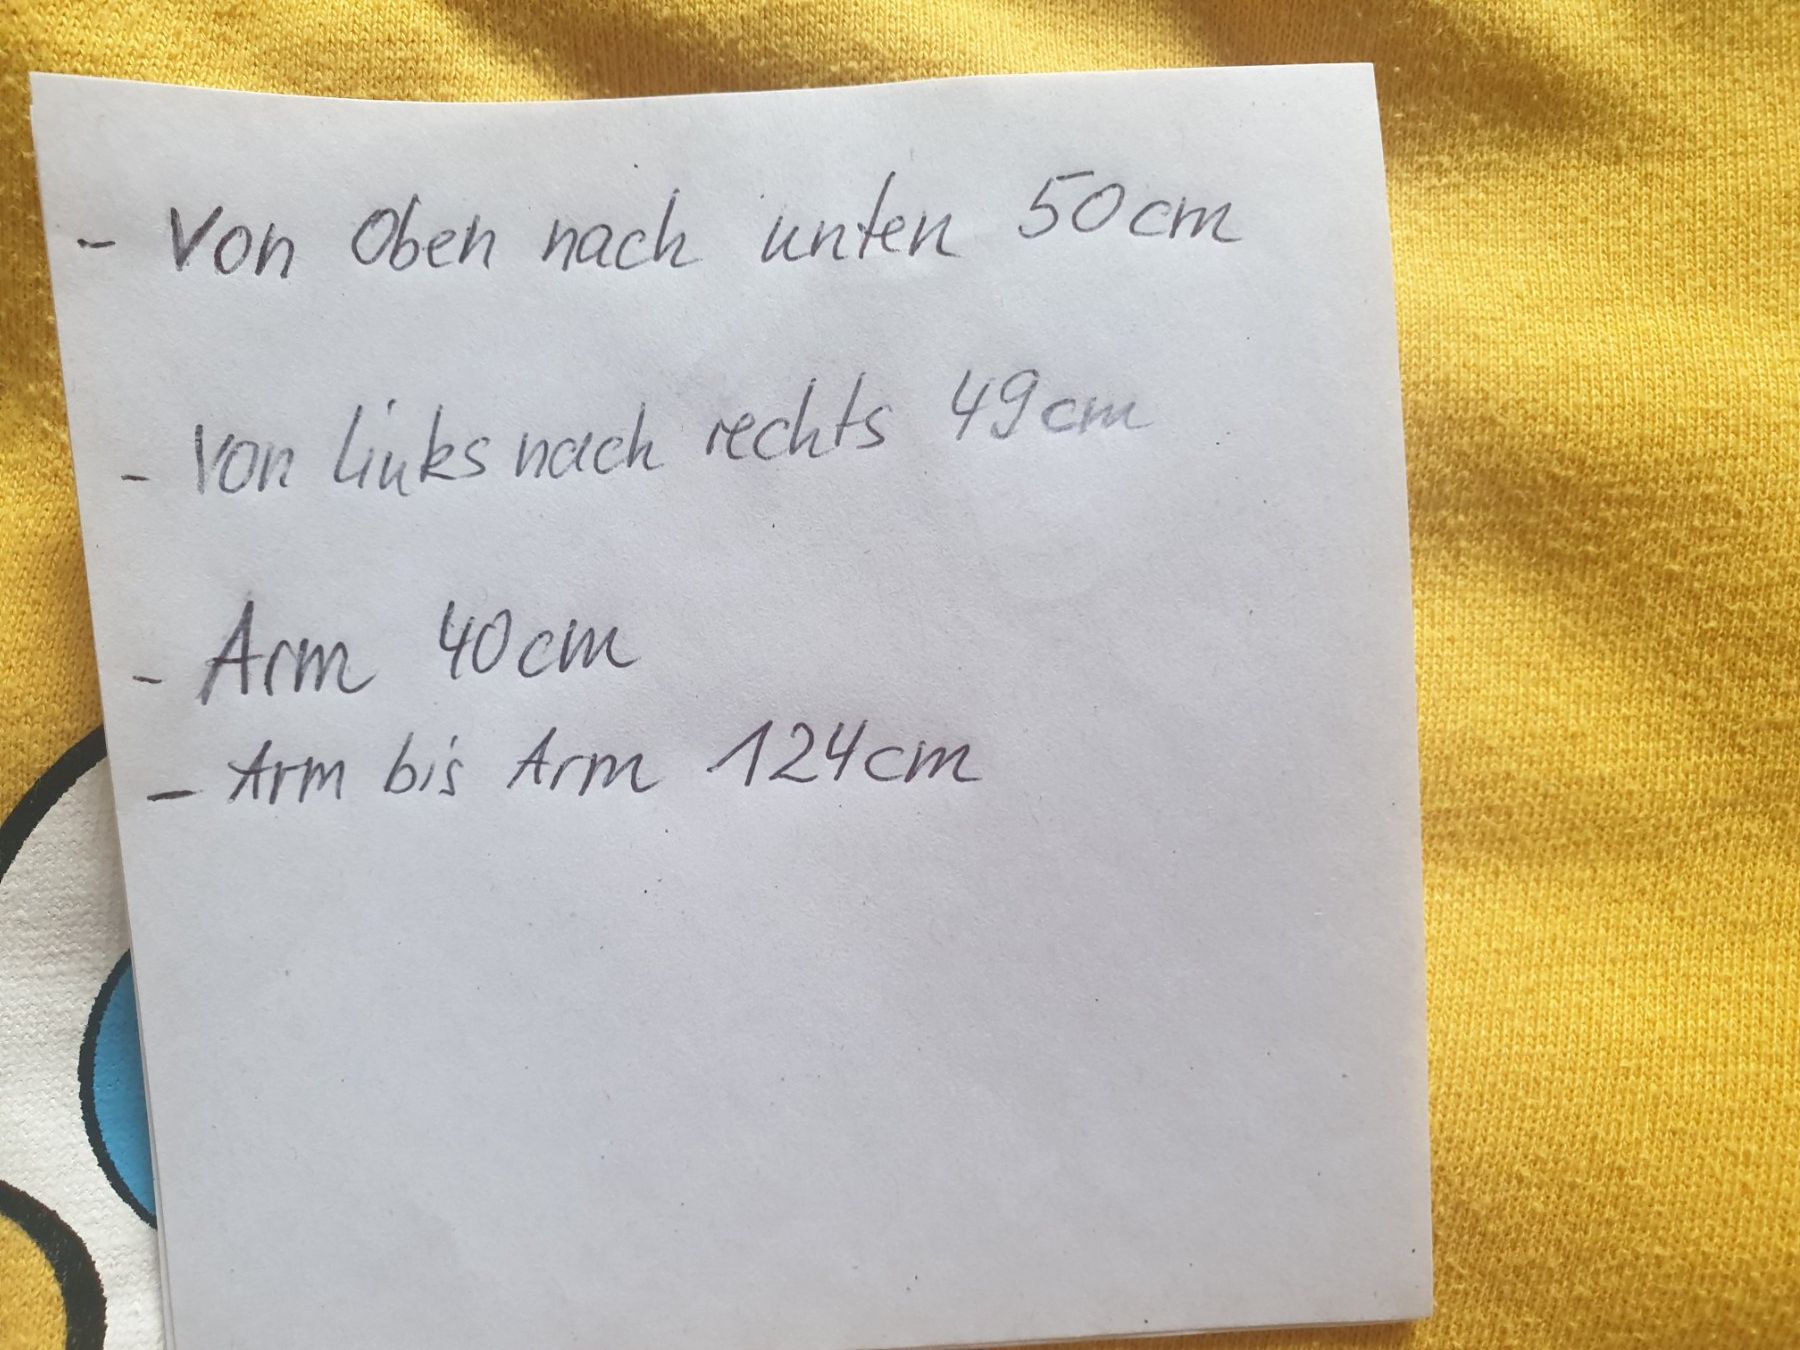 - Von Oben nach unten 50cm
- Von links nach rechts 49cm
- Arm 40cm
- Arm bis Arm 124cm